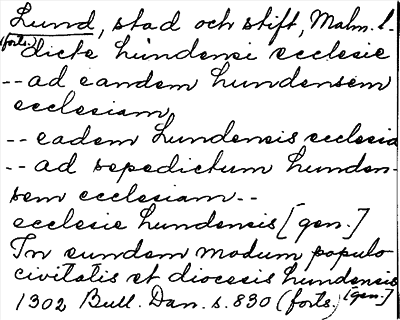 Lund, stad och stift, Malm. l.
(forts.) dicte Lundensi ecclesie
-- ad eandem Lundensem
ecclesiam
-- eadem Lundensis ecclesia
-- ad sepedictum Lunden-
sem ecclesiam --
ecclesie Lundensis [gen.]
In eundem modum populo
civitatis et diocesis Lundensis
[gen.]
1302 Bull. Dan. s. 830 (forts.)